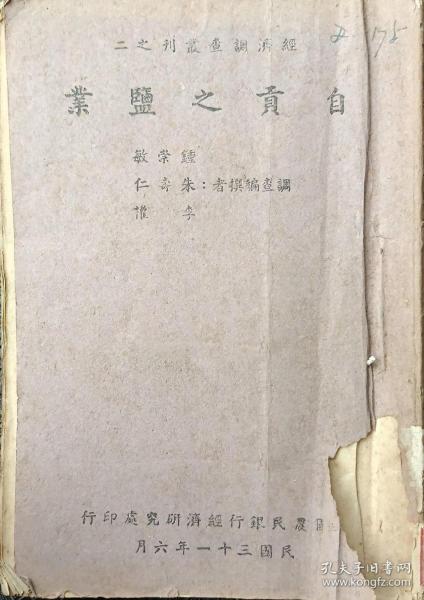 經濟調查叢刊之二
175
自貢之鹽業
鍾崇敏
調查編撰者：朱壽仁
李惟
國農民銀行經濟研究處印行
民國三十一年六月
孔夫子旧书网
www.kongfz.com